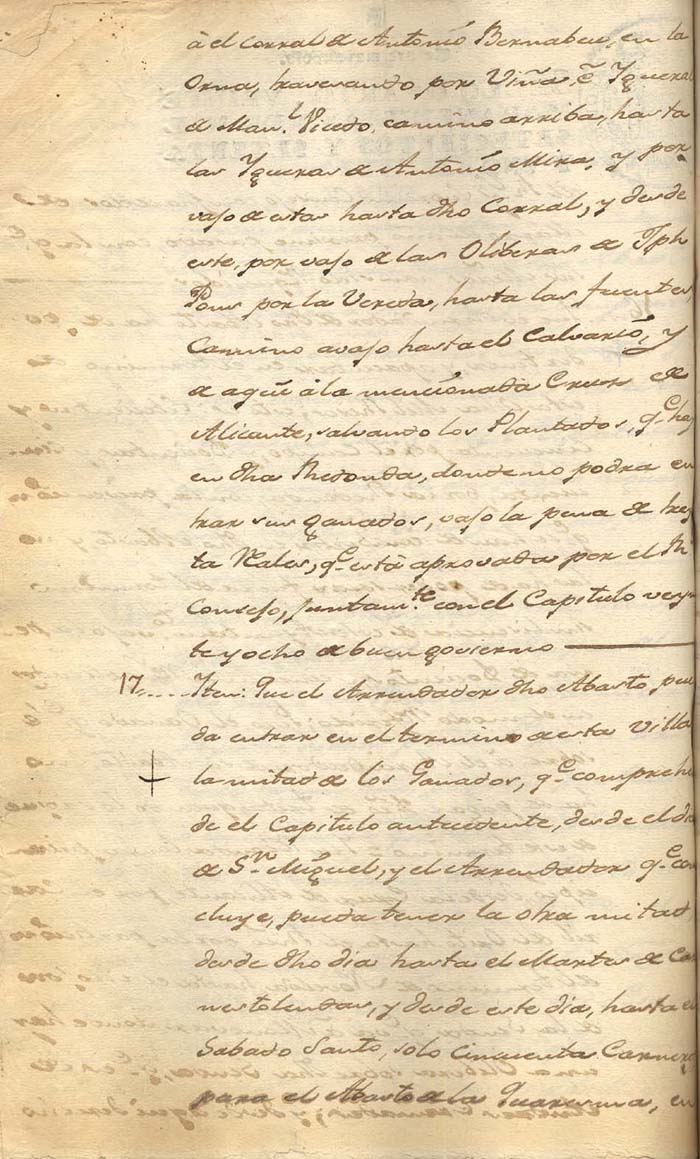 à el Corral de Antonio Bernabeu, en la
Orna, travesando por Viña, è Ygueral
de Man.l Picedo, camino arriba, hasta
las Ygueras de Antonio Mira, y por
vajo de estas hasta dho Corral, y desde
este, por vajo de las Oliberas de Jph
Pons por la Vereda, hasta las fuentes
Camino avajo hasta el Calvario, y
de aqui à la mencionada Cruz de
Alicante, salvando los Plantados, q.e hay
en dha Redonda, donde no podra en
trar sus ganados, vajo la pena de trey
ta Reales, q.e està aprovada por el Rl
Consejo, juntam.te con el Capitulo veyn
te y ocho de buen govierno
17..... Yten: Que el Arrendador dho Abasto, pue
da entrar en el termino de esta Villa
la mitad de los Ganados, q.e comprehe
de el Capitulo antecedente, desde el dia
de S.n Miguel, y el Arrendador q.e con
cluye, pueda tener la otra mitad,
desde dho dia hasta el Martes de Car
nestolendas, y desde este dia, hasta el
Sabado Santo, solo cinquenta Carneros
para el Abasto de la Quaresma, en